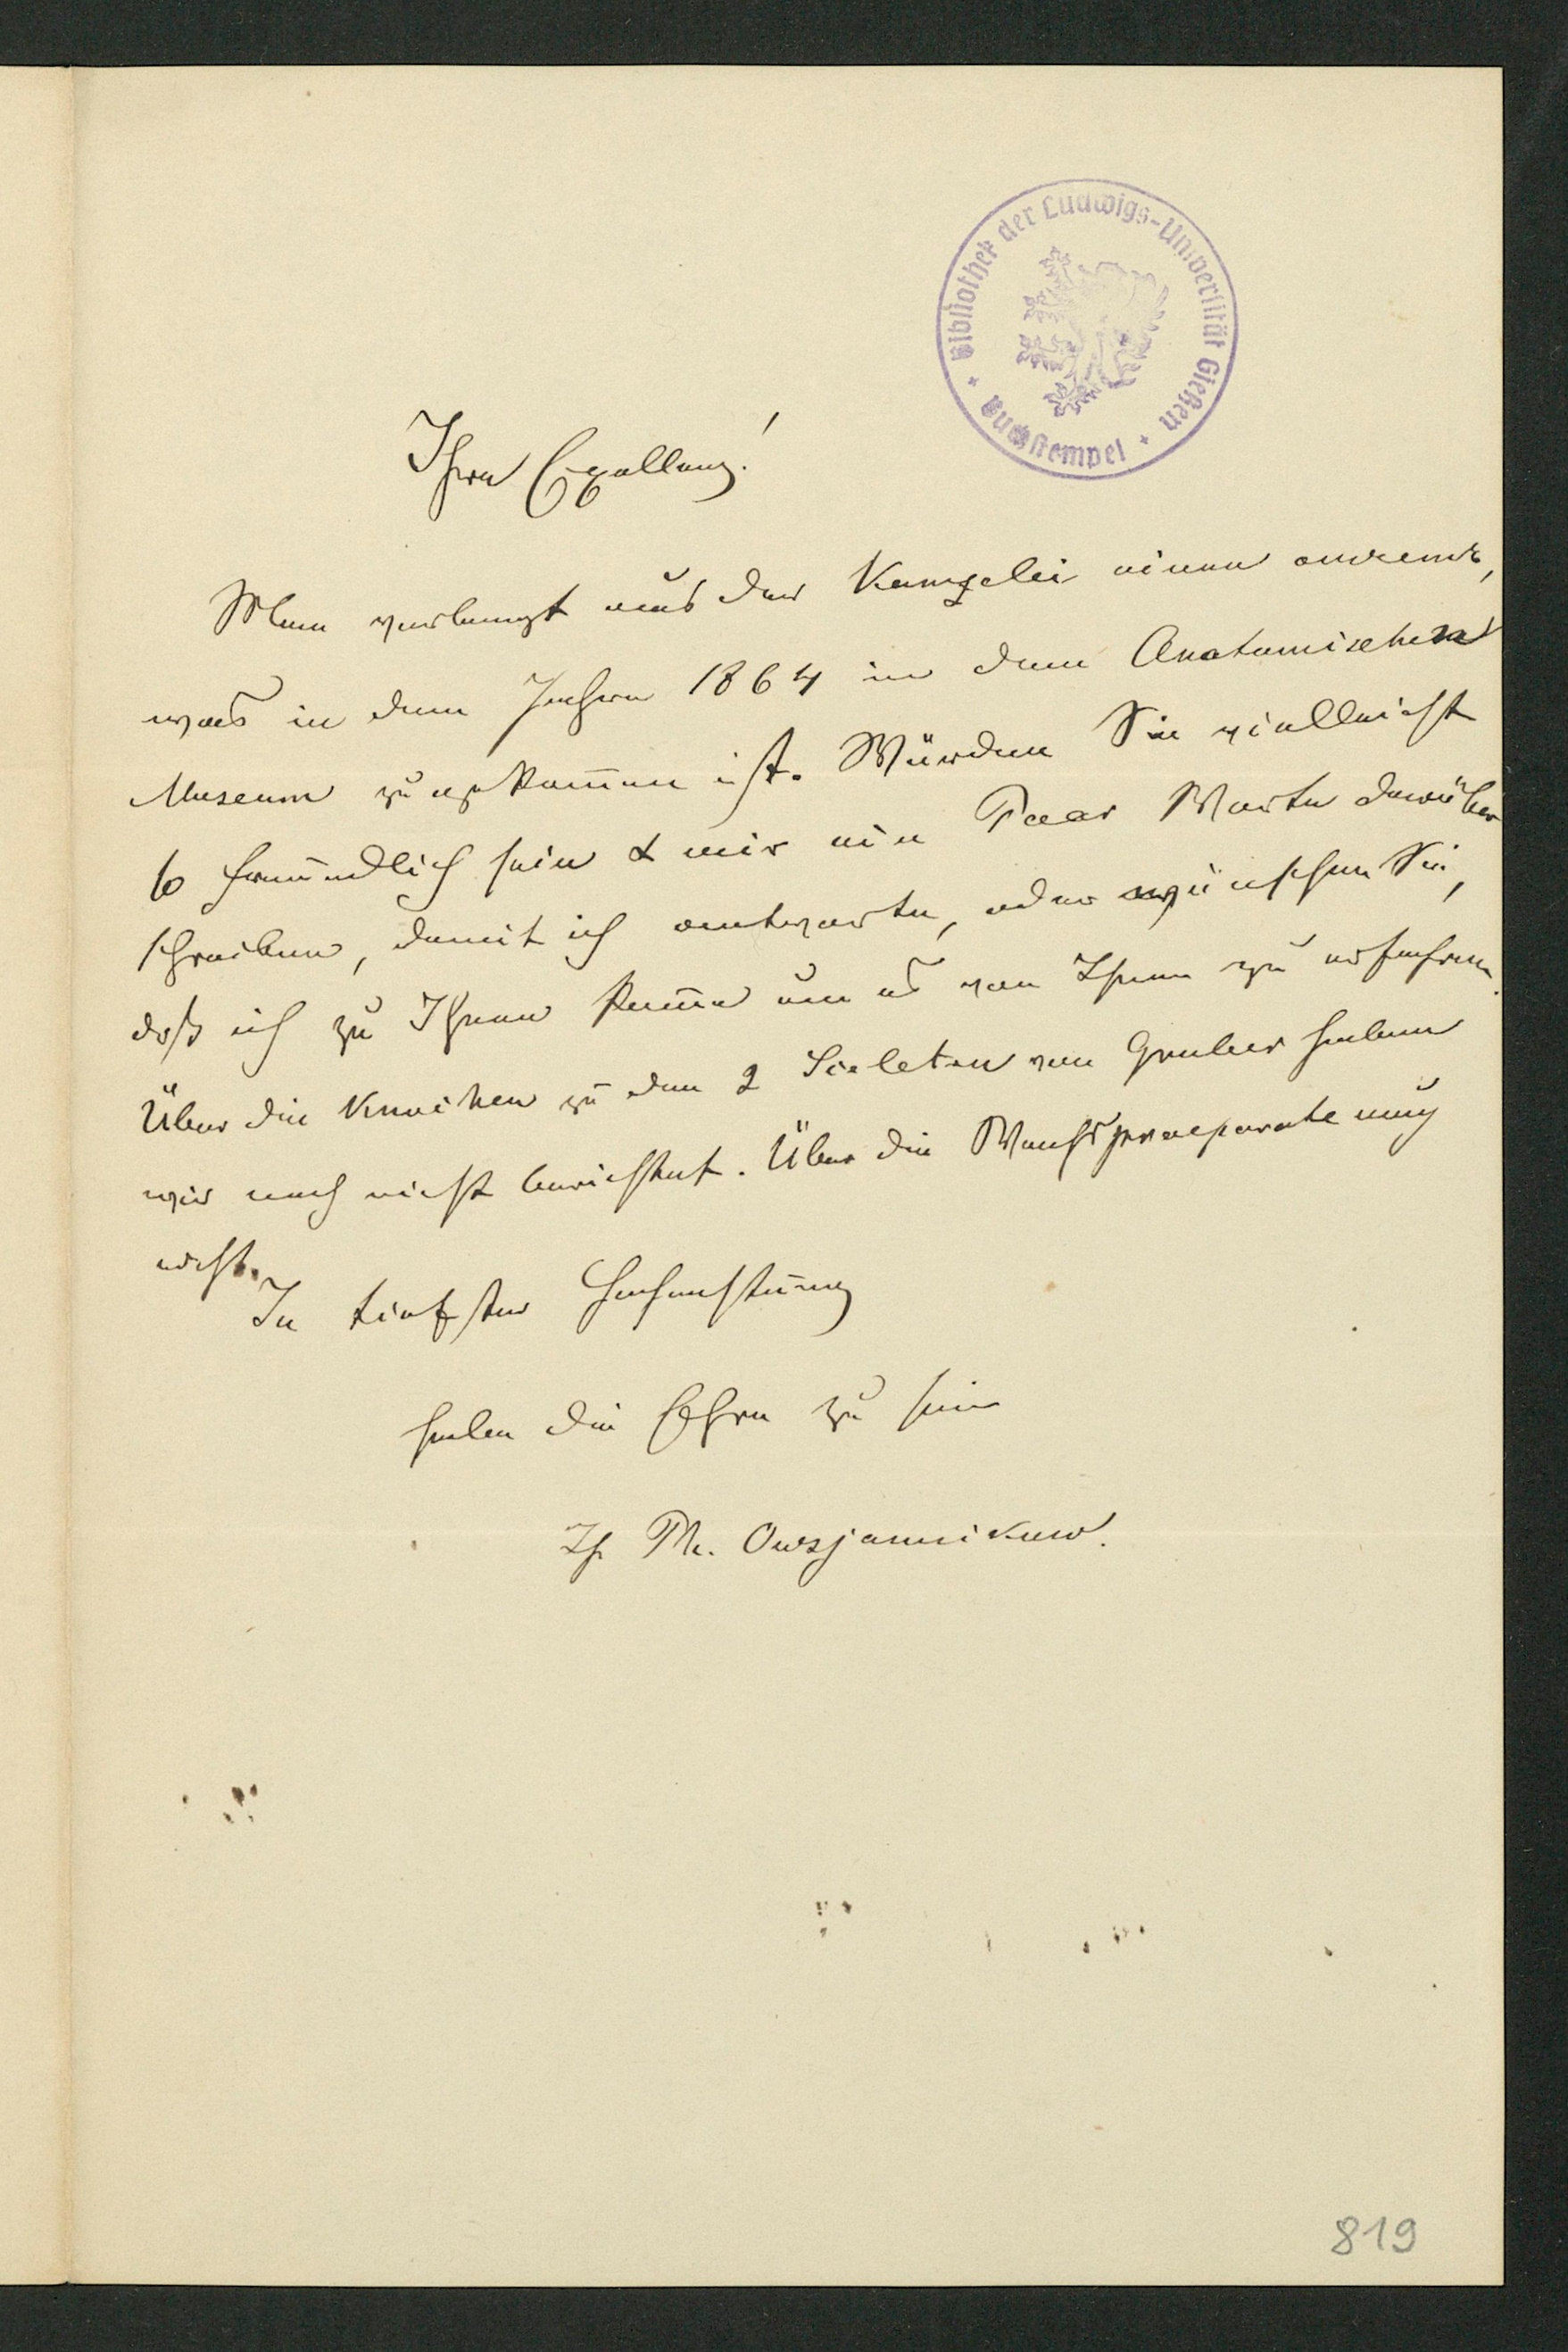 Bibliothek der Ludwigs-Universität Gießen
Buchstempel
Ihre Excellenz!
Man verlangt aus der Kanzelei einen
was in dem Jahre 1864 in dem Anatomischen
Museum zugekom̅en ist. Würden Sie vielleicht
so freundlich sein & mir ein Paar Worte darüber
schreiben, damit ich antworte, oder wünschen Sie,
daß ich zu Ihnen kom̅e um es von Ihnen zu erfahren.
Über die Knochen zu den 2 Sceleten von Gruber haben
wir noch nicht berichtet. Über die Wachspraeparate auch
nicht.
In tiefster Hochachtung
habe die Ehre zu sein
Ih Ph. Owsjannikow.
819